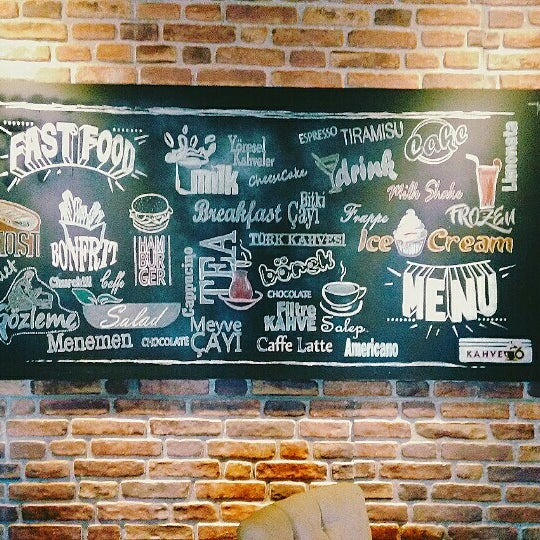 FAST FOOD
milk
Yöresel
Kahveler
CheeseCake
ESPRESSO
TIRAMISU
Cake
drink
Limonata
Milk Shake
FROZEN
OST
BONFRIT
HAM
BUR
GER
Breakfast
Bitki
Çayı
Frappe
Ice Cream
TÜRK KAHVESİ
TEA
Cappucino
börek
CHOCOLATE
Filtre
KAHVE
Salep
MENU
Churchill
Caffe
gözleme
Salad
Menemen
CHOCOLATE
Meyve
ÇAYI
Caffe Latte
Americano
KAHVE